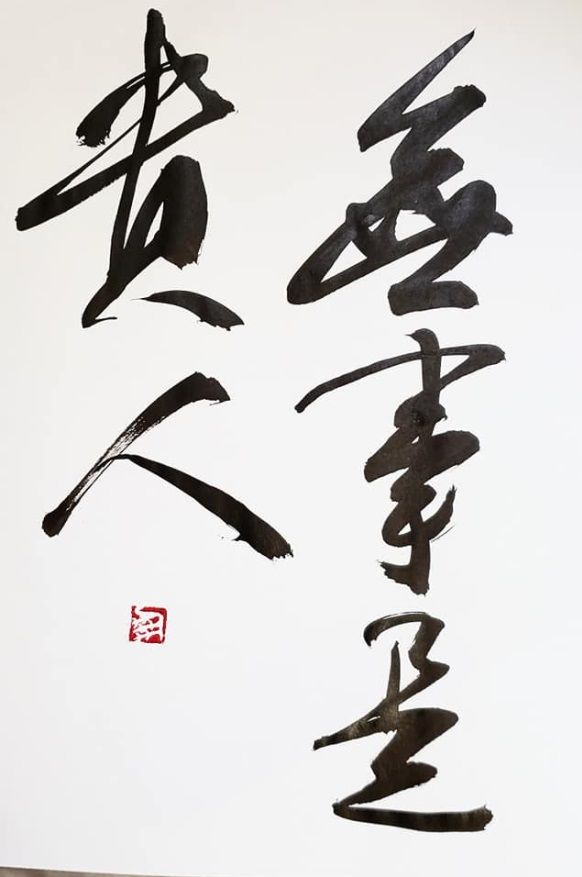 無事是
貴人